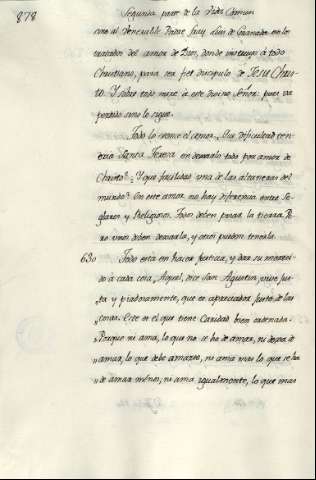 878
Segunda parte de la Vida Comun
uno al Venerable Padre fray Luis de Granada en los
tratados del amor de Dios, donde instruye á todo
Christiano, para ser fiel discipulo de Jesu Chris-
to. Y sobre todo mire á este divino Señor: pues va
perdido sino le sigue.
Todo lo vence el amor. Que dificultad ten-
dria Santa Teresa en dexarlo todo por amor de
Christo? Y que facilidad una de las altaneras del
mundo? En este amor no hay diferencia entre Se-
glares y Religiosos. Todos deben pisar la tierra. Pe-
ro unos deben dexarla, y otros pueden tenerla.
630 Todo está en hacer justicia, y dar su mereci-
do á cada cosa. Aquel, dice San Agustin, vive jus-
ta y piadosamente, que es apreciador justo de las
cosas. Este es el que tiene Caridad bien ordenada.
Porque ni ama, lo que no se ha de amar, ni dexa de
amar, lo que debe amarse, ni ama mas lo que se ha
de amar ménos, ni ama igualmente, lo que mas